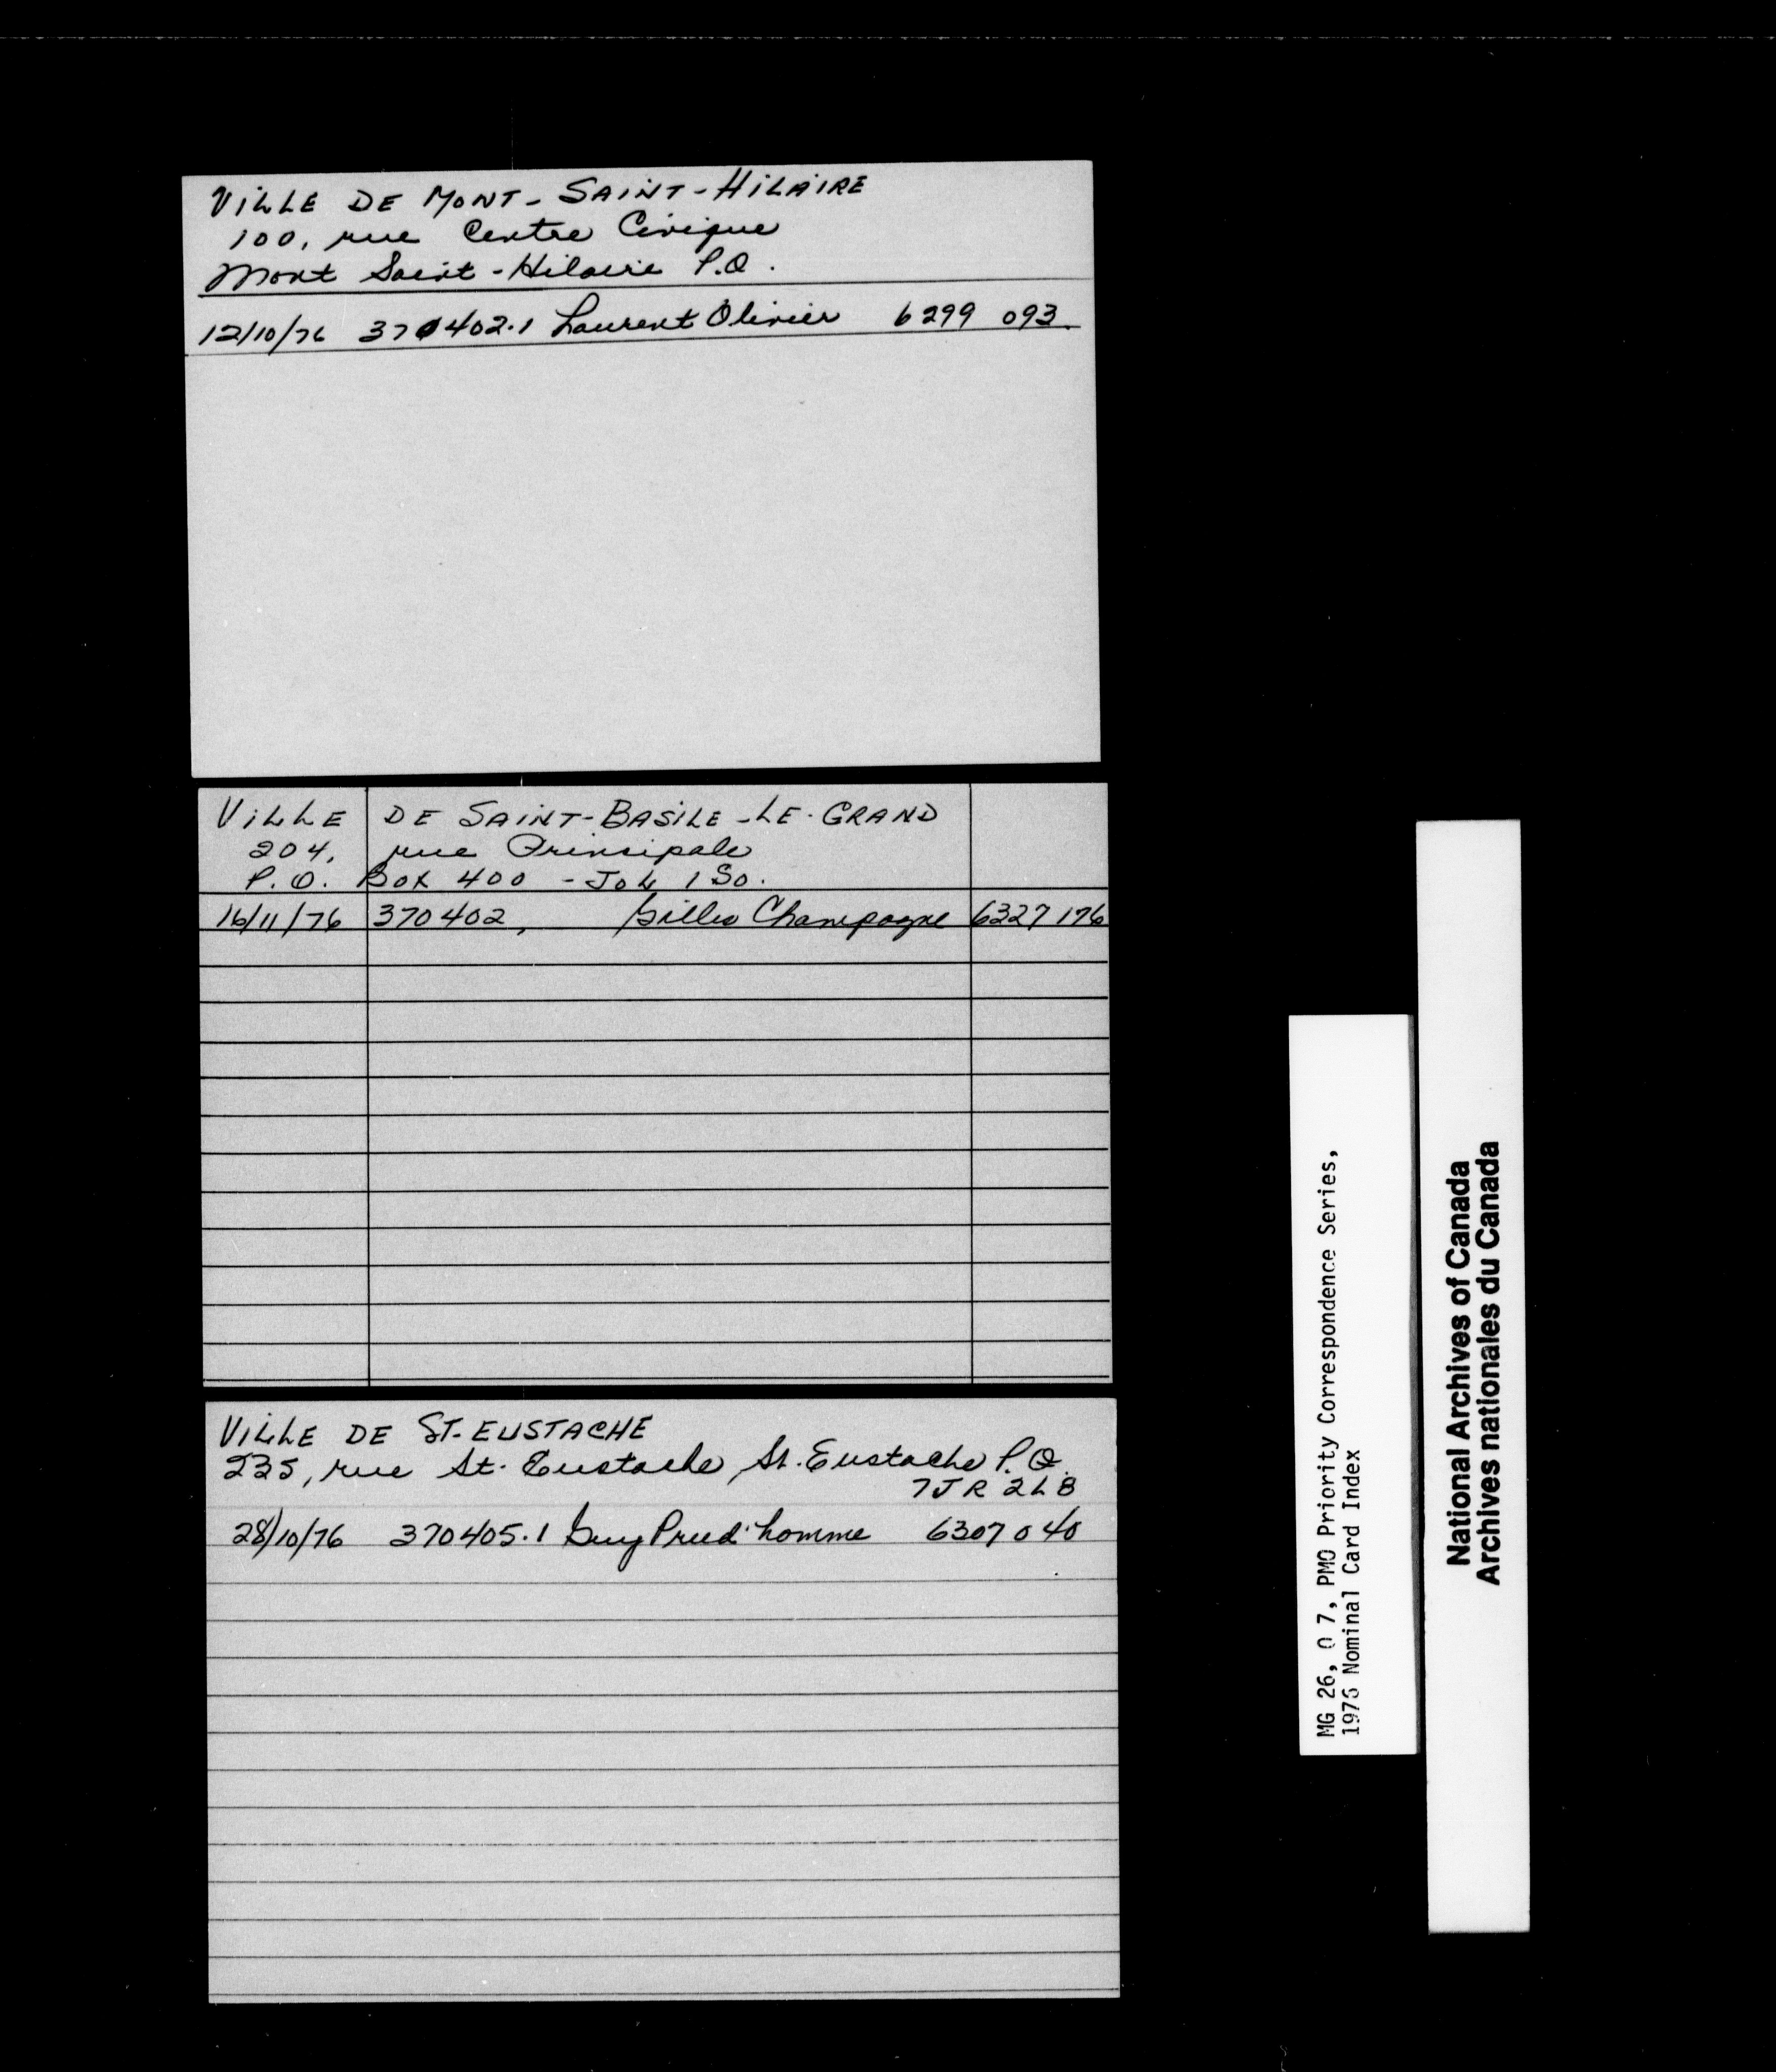 VILLE DE MONT-SAINT-HILAIRE
100, rue Centre Civique
Mont Saint-Hilaire P.Q.
12/10/76 370402.1 Laurent Olivier 6299 093
VILLE DE SAINT-BASILE-LE-GRAND
204, rue Principale
P.O. Box 400 - JOL 1S0.
16/11/76 370402, Gilles Champagne 6327 176
VILLE DE ST-EUSTACHE
235, rue St. Eustache, St. Eustache P.Q.
7JR 2L8
28/10/76 370405.1 Guy Prud'homme 6307 040
MG 26, O 7, PMO Priority Correspondence Series,
1976 Nominal Card Index
National Archives of Canada
Archives nationales du Canada